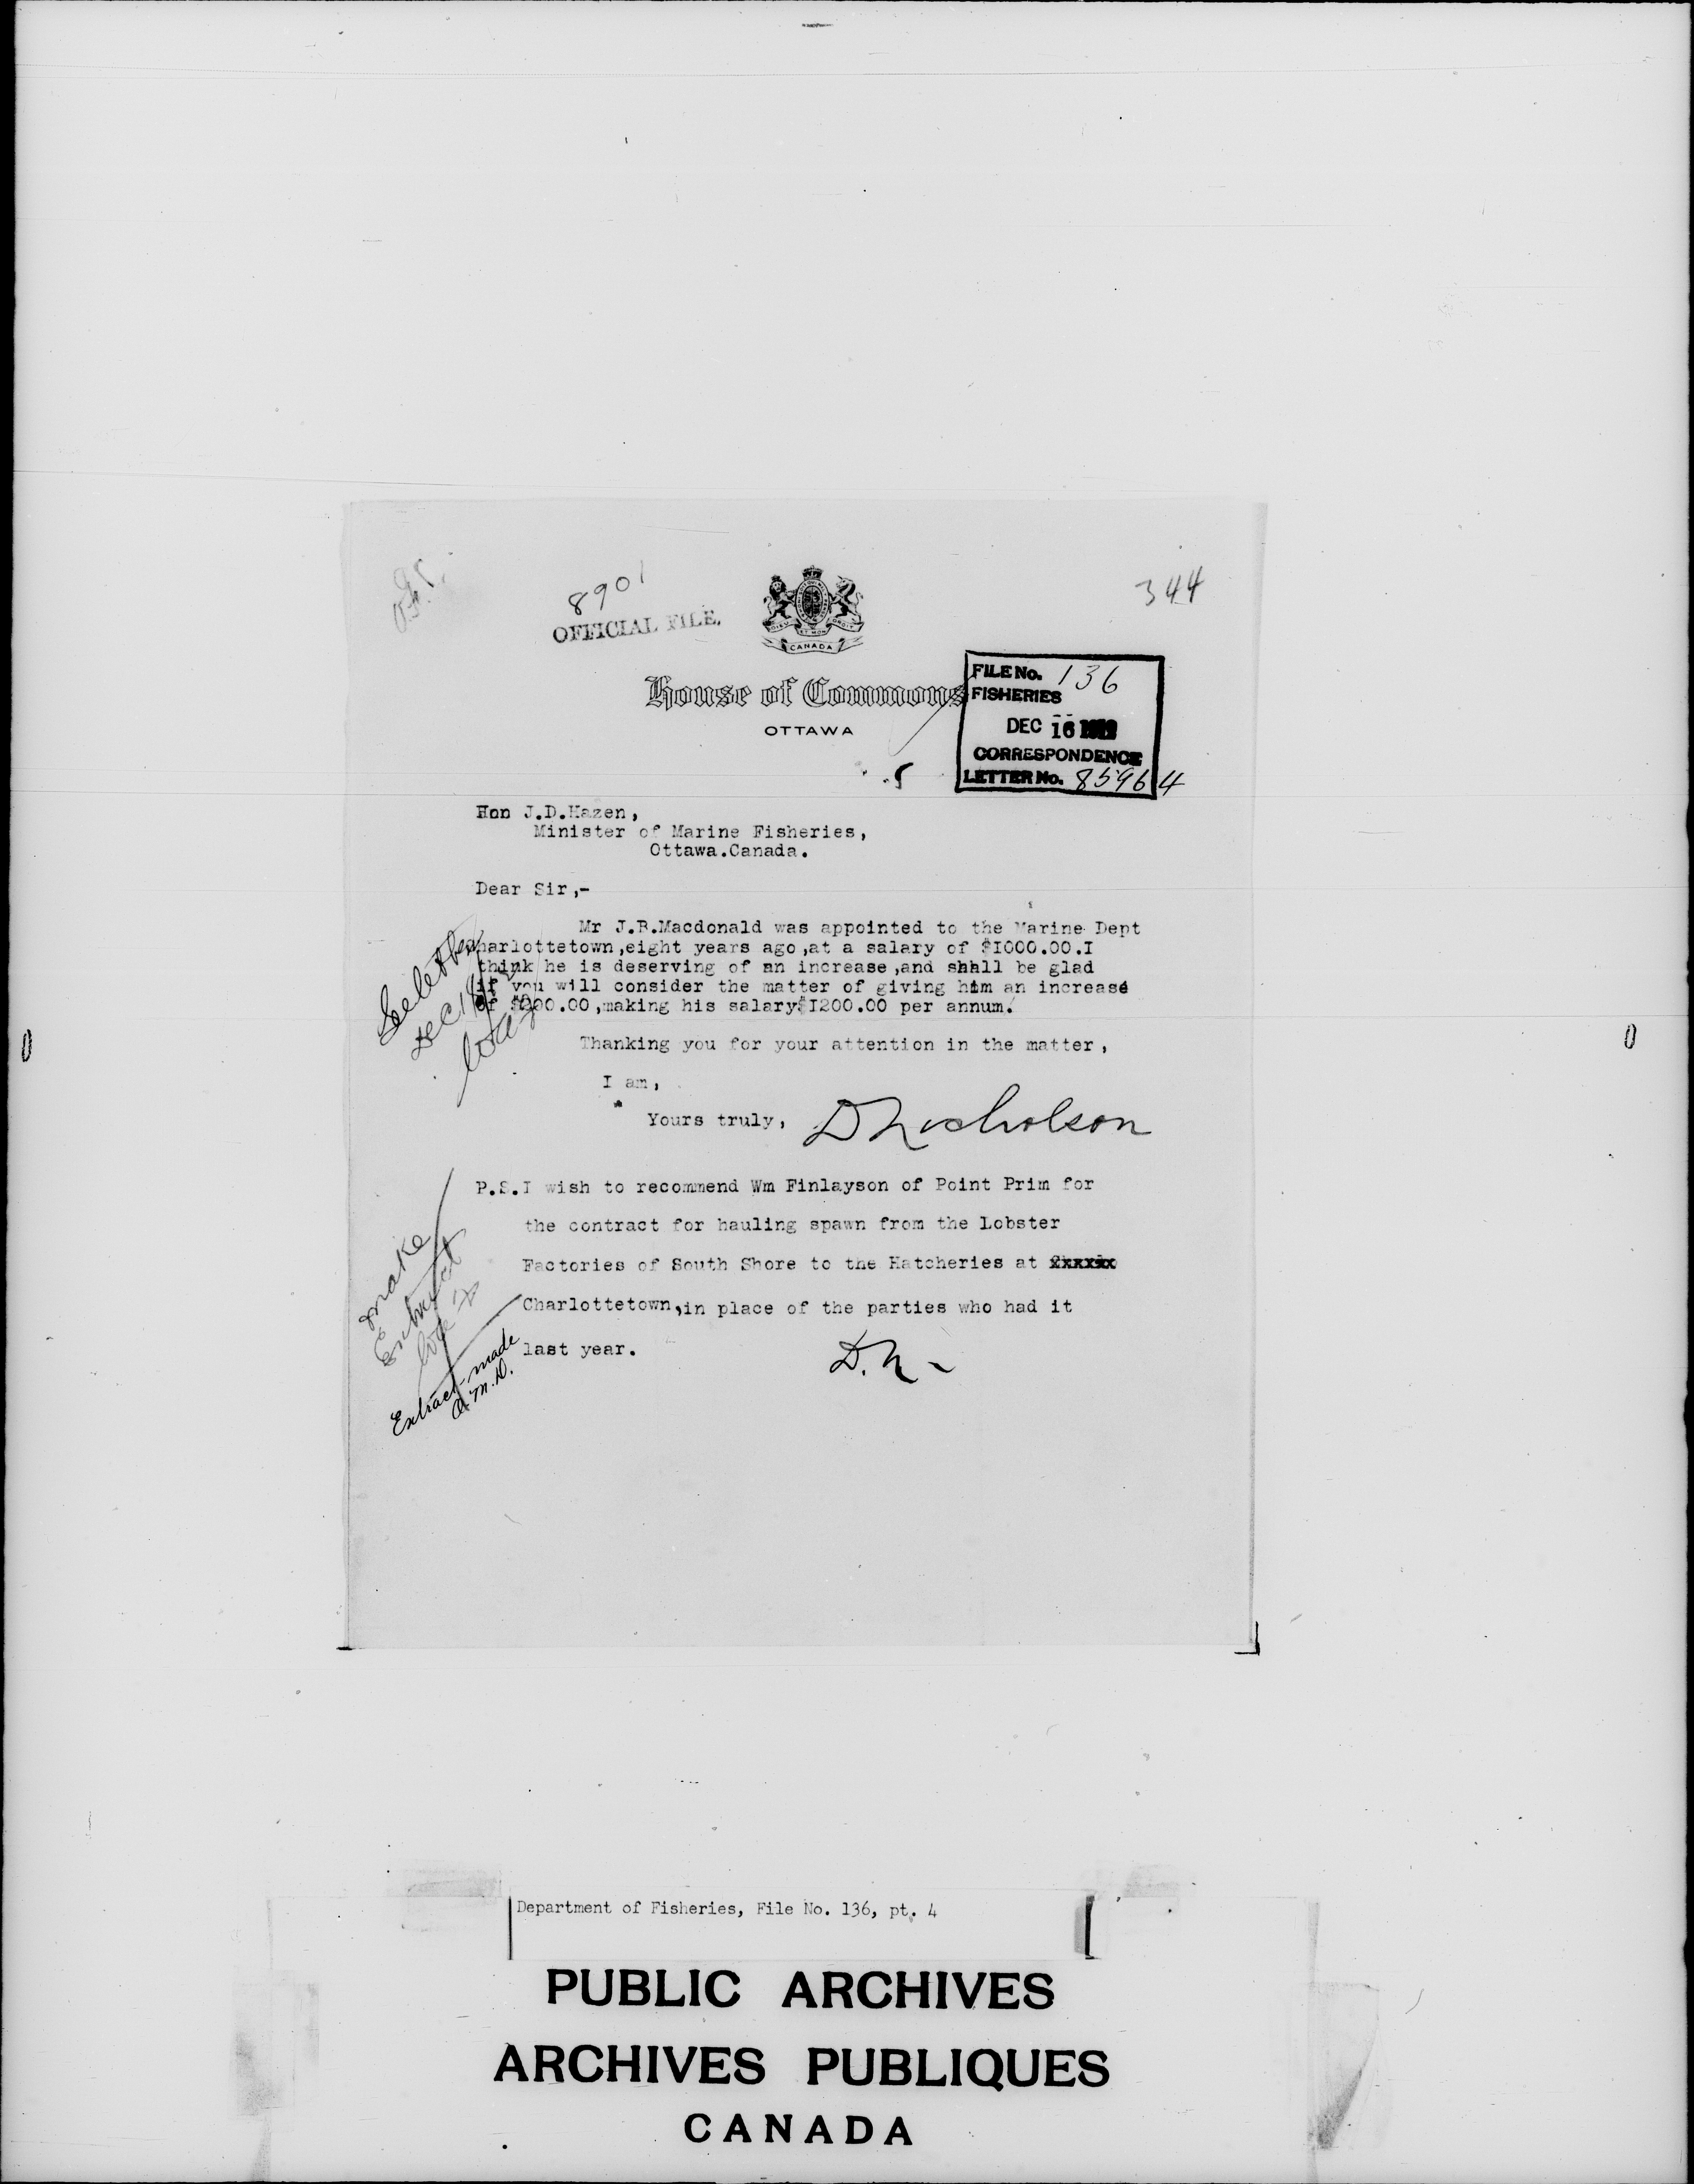 8901
344
OFFICIAL FILE.
CANADA
House of Commons
OTTAWA
FILE No. 136
FISHERIES
DEC 16
CORRESPONDENCE
LETTER No. 85964
Hon J.D.Hazen,
Minister of Marine Fisheries,
Ottawa.Canada.
Dear Sir,-
Mr J.R.Macdonald was appointed to the Marine Dept
Charlottetown,eight years ago,at a salary of $I000.00.I
think he is deserving of an increase,and shall be glad
if you will consider the matter of giving him an increase
of $200.00,making his salary$I200.00 per annum.
Thanking you for your attention in the matter,
I am,
Yours truly, D Nicholson
P.S.I wish to recommend Wm Finlayson of Point Prim for
the contract for hauling spawn from the Lobster
Factories of South Shore to the Hatcheries at
Charlottetown,in place of the parties who had it
last year.
D.N-
make
Extract
Extract made
Department of Fisheries, File No. 136, pt. 4
PUBLIC ARCHIVES
ARCHIVES PUBLIQUES
CANADA